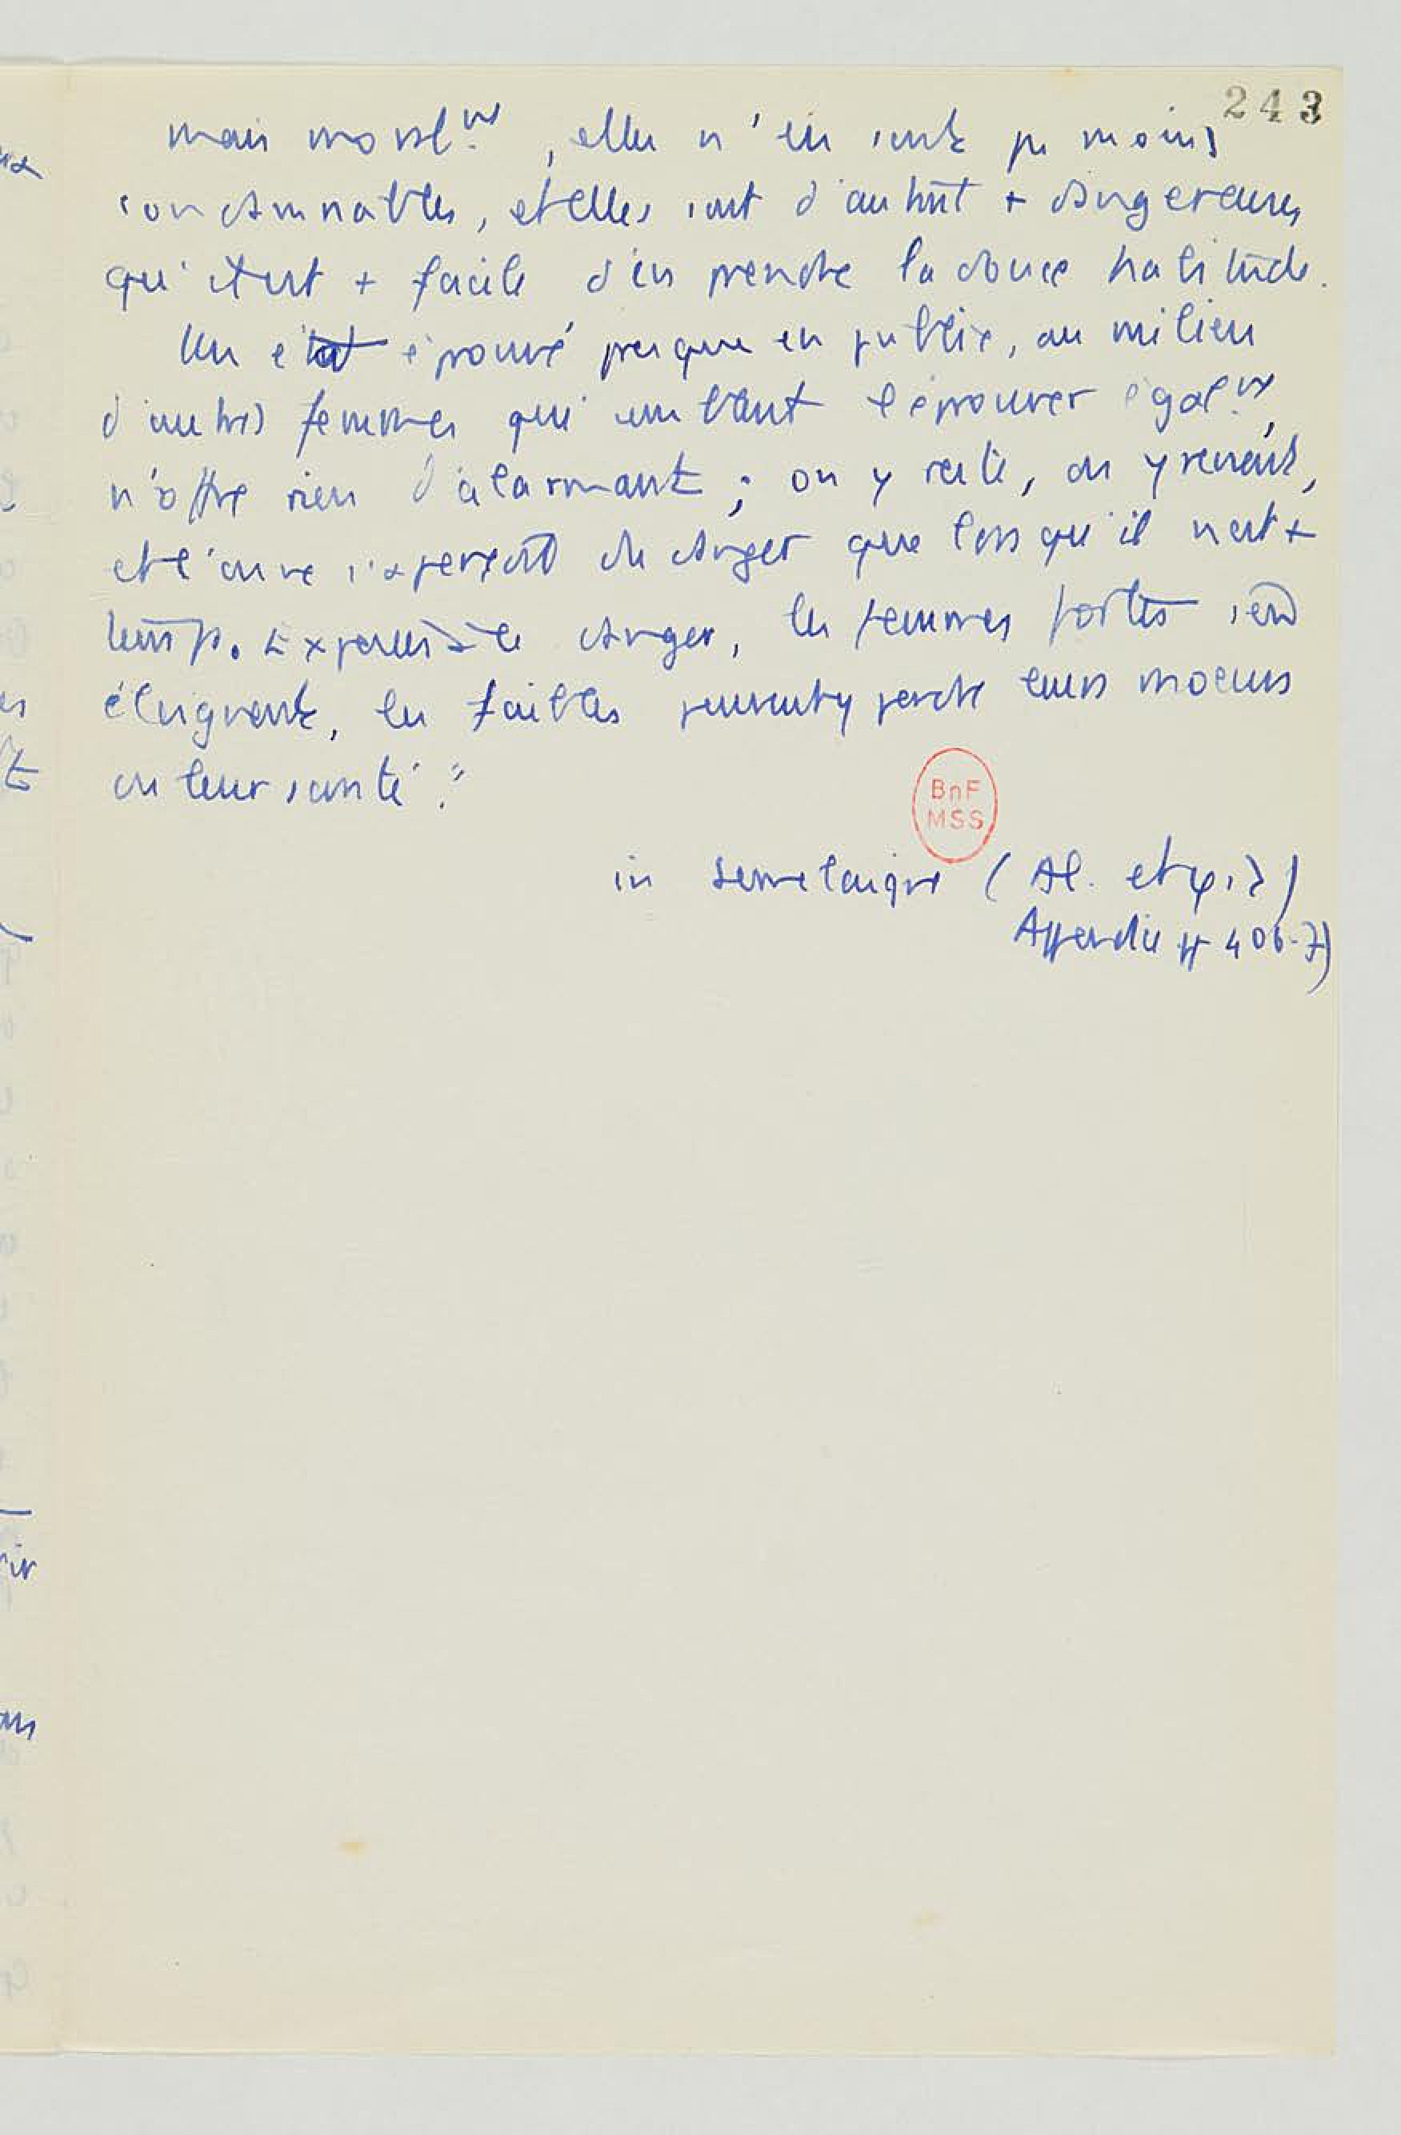 243
mais moral.nt, elles n'en sont pas moins
condamnables, et elles sont d'autant + dangereuses
qu'il est + facile d'en prendre la douce habitude.
Un état éprouvé presque en public, au milieu
d'autres femmes qui semblent l'éprouver égal.nt,
n'offre rien d'alarmant ; on y reste, on y revient,
et l'on ne s'aperçoit du danger que lorsqu'il n'est +
temps. Exposées à ce danger, les femmes fortes s'en
éloignent, les faibles peuvent y perdre leurs moeurs
ou leur santé."
BnF
MSS
in Semelaigne (Al. et φ.)
Appendice pp 406-7)